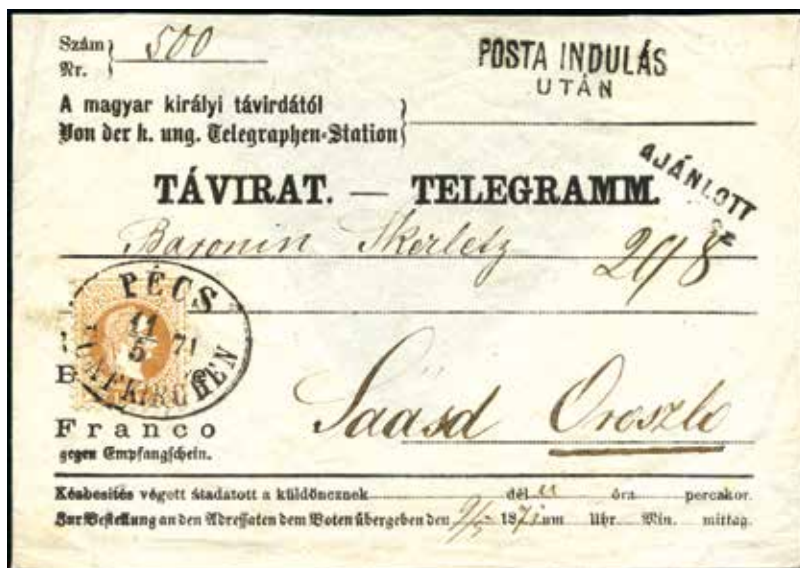 Szám } 500
Nr.
POSTA INDULÁS
UTÁN
A magyar királyi távirdától
Von der k. ung. Telegraphen-Station
AJÁNLOTT
TÁVIRAT. — TELEGRAMM.
Baronin Skerletz 298
PÉCS
11
5 71
FÜNFKIRCHEN
B
Saásd Oroszlo
Franco
gegen Empfangschein.
Kézbesités végett átadatott a küldöncznek dél u óra perczkor.
Zur Bestellung an den Adressaten dem Boten übergeben den 1871 um Uhr Min. mittag.